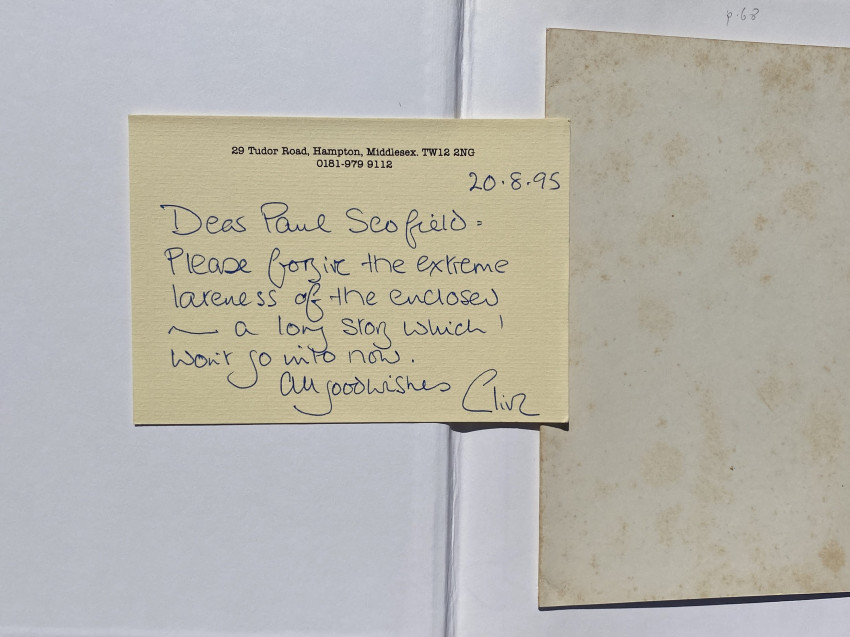 p.68
29 Tudor Road, Hampton, Middlesex. TW12 2NG
0181-979 9112
20.8.95
Dear Paul Scofield -
Please forgive the extreme
lateness of the enclosed
— a long story which I
won't go into now.
All good wishes Clive